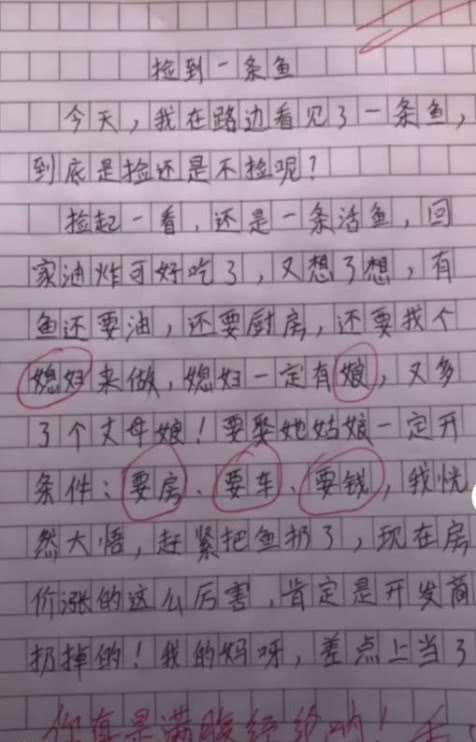 捡到一条鱼
今天，我在路边看见了一条鱼，
到底是捡还是不捡呢？
捡起一看，还是一条活鱼，回
家油炸可好吃了，又想了想，有
鱼还要油，还要厨房，还要找个
媳妇来做，媳妇一定有娘，又多
了个丈母娘！要娶她姑娘一定开
条件：要房、要车、要钱，我恍
然大悟，赶紧把鱼扔了，现在房
价涨的这么厉害，肯定是开发商
扔掉的！我的妈呀，差点上当了
你真是满腹经纶呐！